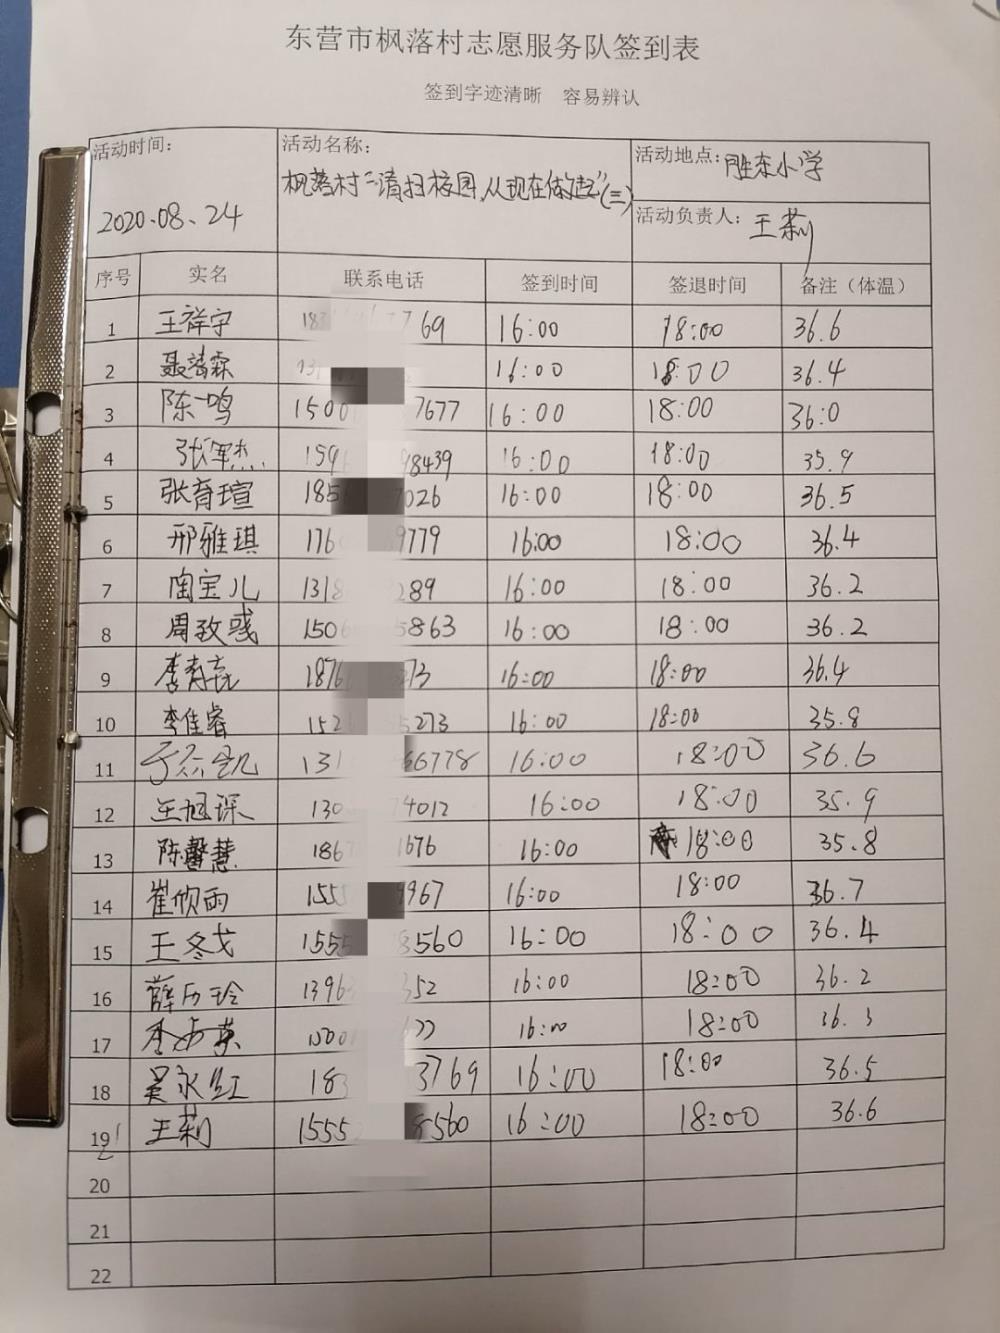 东营市枫落村志愿服务队签到表
签到字迹清晰 容易辨认
活动时间: 活动名称: 活动地点: 胜东小学
2020.08.24 枫落村“清扫校园,从现在做起”(三)
活动负责人: 王莉
序号 实名 联系电话 签到时间 签退时间 备注(体温)
1 王祥宇 18 69 16:00 18:00 36.6
2 聂 霖 13 16:00 18:00 36.4
3 陈一鸣 1500 7677 16:00 18:00 36:0
4 张军杰 159 98439 16:00 18:00 35.9
5 张育瑄 185 7026 16:00 18:00 36.5
6 邢雅琪 176 9779 16:00 18:00 36.4
7 陶宝儿 1318 289 16:00 18:00 36.2
8 周致惑 150 5863 16:00 18:00 36.2
9 李 1876 73 16:00 18:00 36.4
10 李佳睿 152 5273 16:00 18:00 35.8
11 于 凯 131 66778 16:00 18:00 36.6
12 王旭琛 130 74012 16:00 18:00 35.9
13 陈馨慧 1867 1676 16:00 18:00 35.8
14 崔欣雨 1555 9967 16:00 18:00 36.7
15 王冬戈 1555 8560 16:00 18:00 36.4
16 薛历玲 1396 352 16:00 18:00 36.2
17 李 英 1500 16:00 18:00 36.3
18 吴永红 18 3769 16:00 18:00 36.5
19 王莉 1555 8560 16:00 18:00 36.6
20
21
22